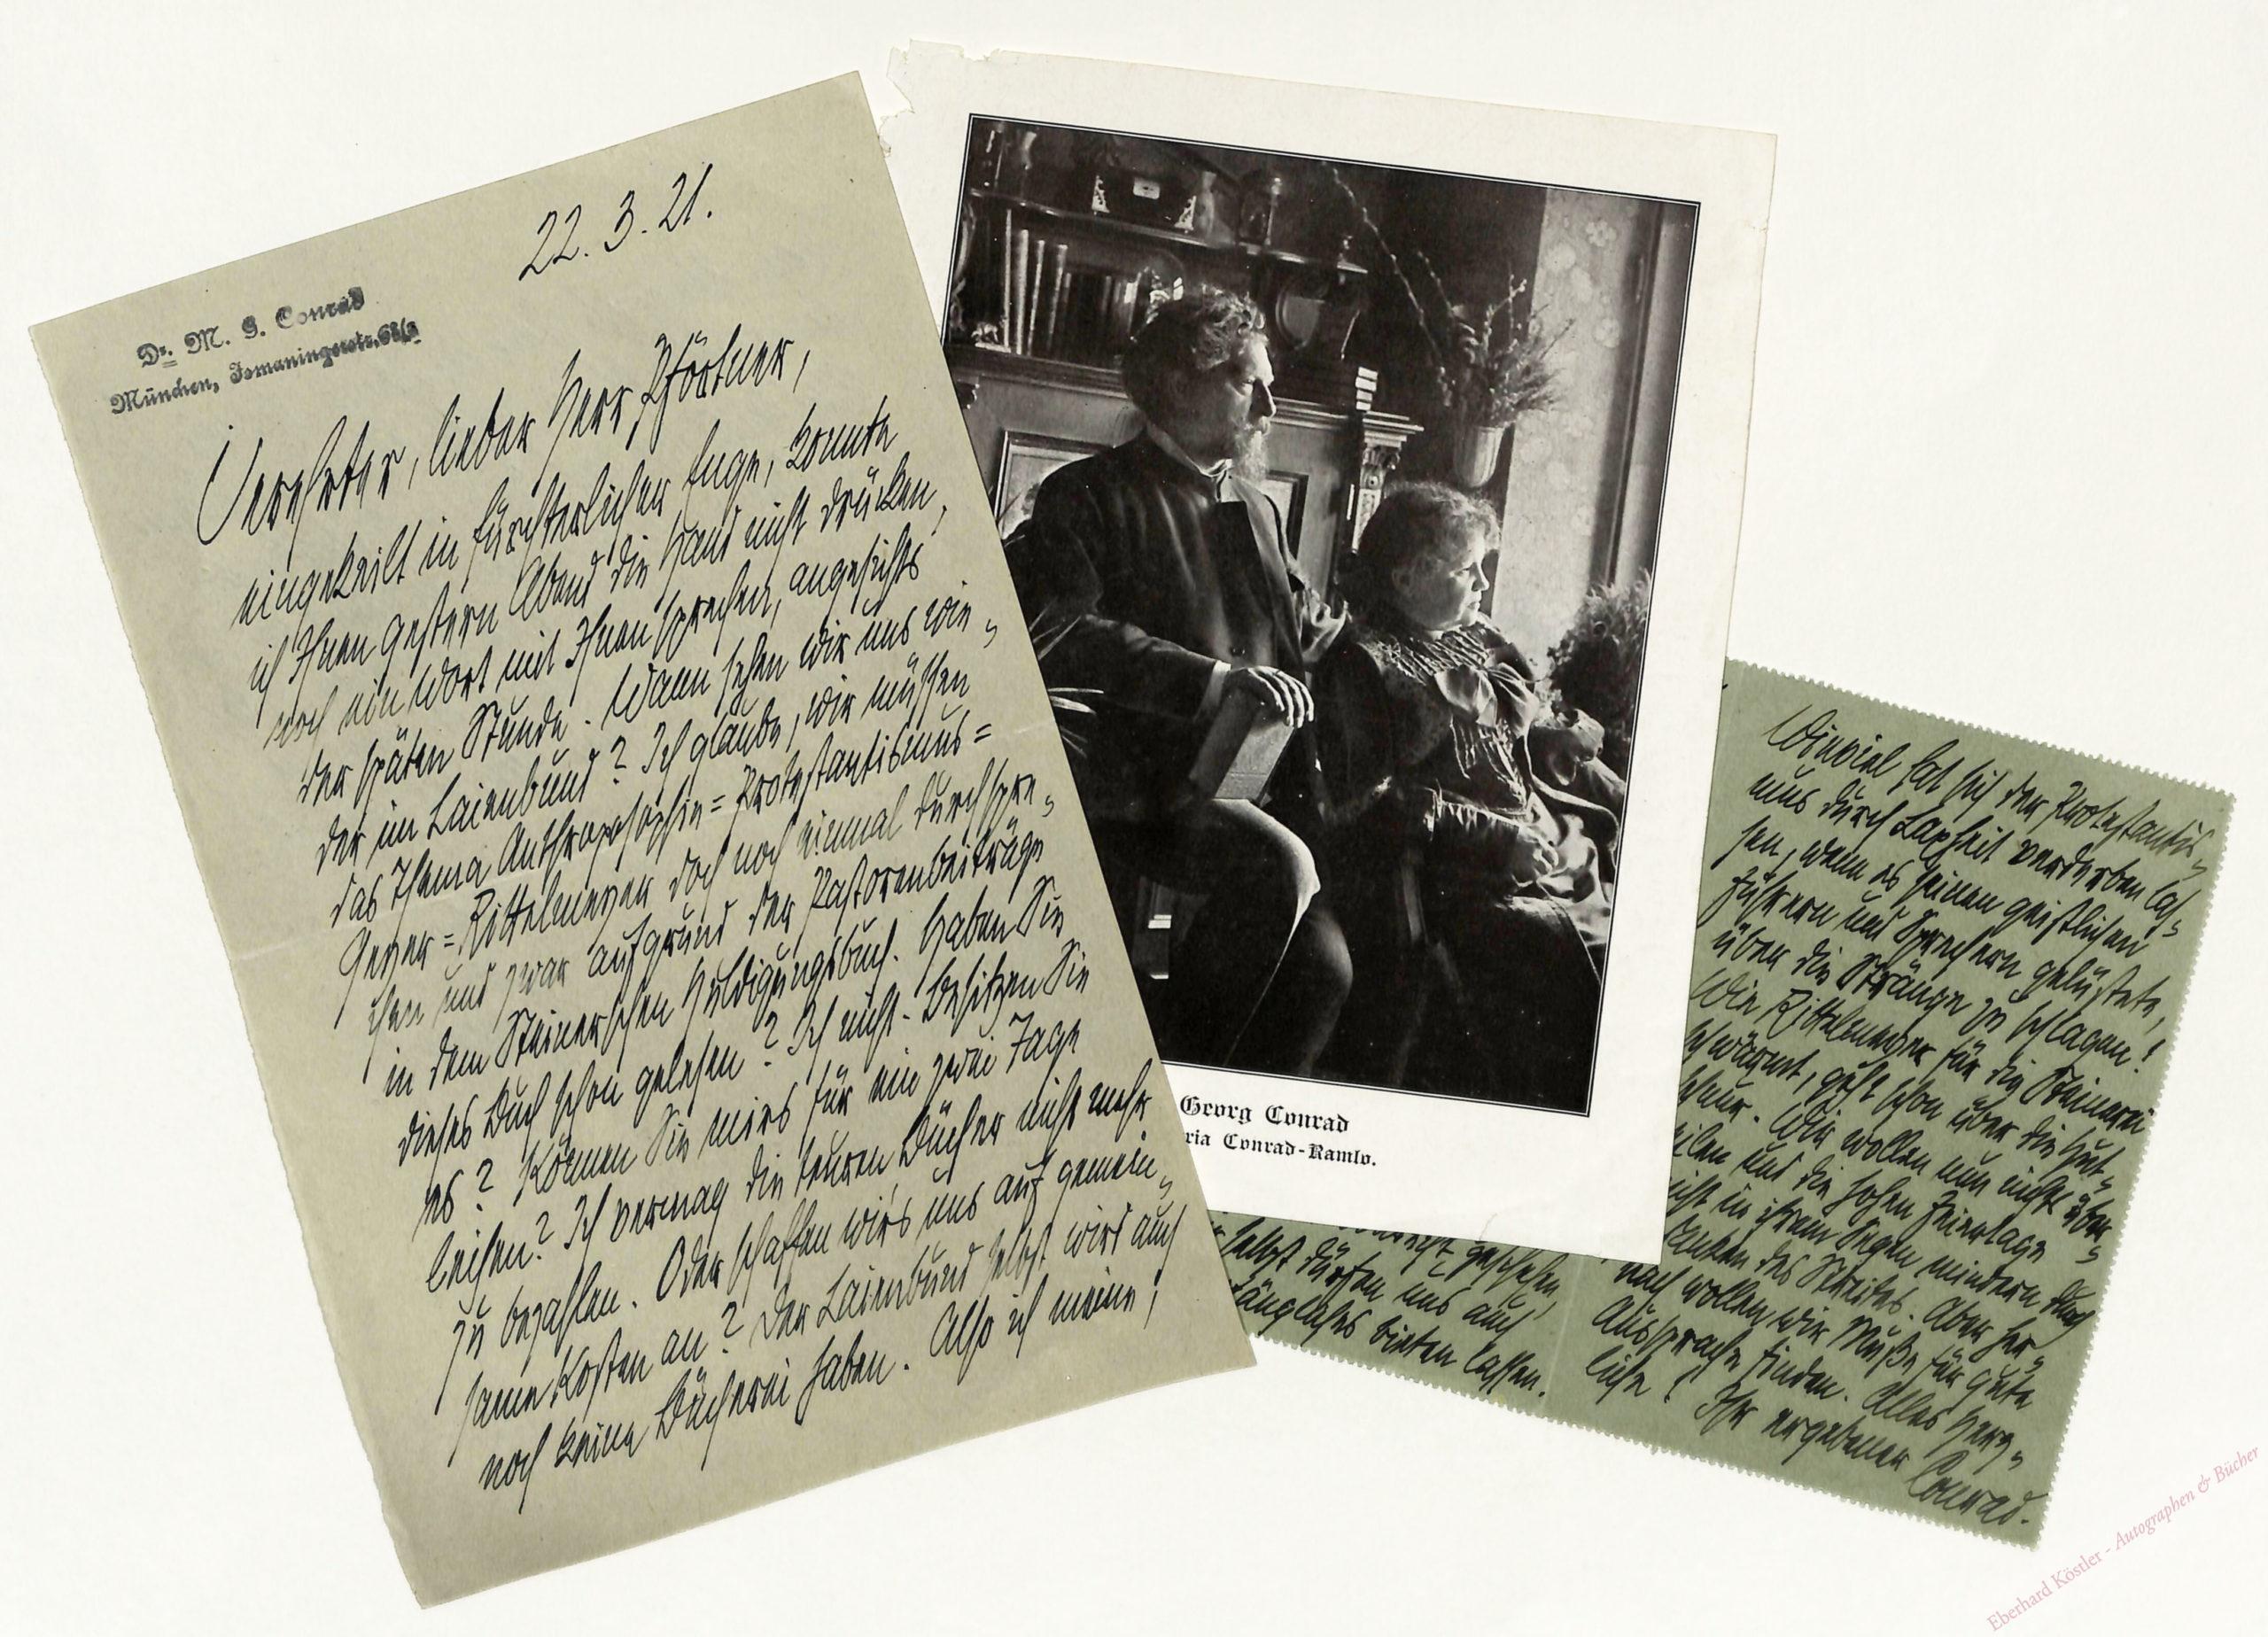 22. 3. 21.
Dr. M. G. Conrad
München, Ismaningerstr. 68/3
Verehrter, lieber Herr Pförtner,
eingekeilt in fürchterlicher Enge, konnte
ich Ihnen gestern Abend die Hand nicht drücken,
noch ein Wort mit Ihnen sprechen, angesichts
der späten Stunde. Wann sehen wir uns wie-
der im Laienbund? Ich glaube, wir müssen
das Thema Anthroposophie=Protestantismus=
Geyer=Rittelmeyer doch noch einmal durchspre-
chen und zwar aufgrund der Pastorenbeiträge
in dem Steinerschen Huldigungsbuch. Haben Sie
dieses Buch schon gelesen? Ich nicht. Besitzen Sie
es? Können Sie mirs für ein zwei Tage
leihen? Ich vermag die teuren Bücher nicht mehr
zu bezahlen. Oder schaffen wir's uns auf gemein-
same Kosten an? Der Laienbund selbst wird auch
noch keine Bücherei haben. Also ich meine;
Georg Conrad
ria Conrad-Ramlo.
geschehen,
selbst dürfen uns auch
längliches bieten lassen.
Wieviel hat sich der Protestantis-
mus durch Laxheit verderben las-
sen, wenn es seinen geistlichen
Führern und Sprechern gelüstete,
über die Stränge zu schlagen!
Wie Rittelmeyer für die Steinerei
schwärmt, geht schon über die Hut-
schnur. Wir wollen nun nichts über-
eilen und die hohen Feiertage
nicht in ihrem Segen mindern durch
des Streites. Aber her-
nach wollen wir Muße für gute
Aussprache finden. Alles Herz-
liche! Ihr ergebener
Conrad.
Eberhard Köstler - Autographen & Bücher